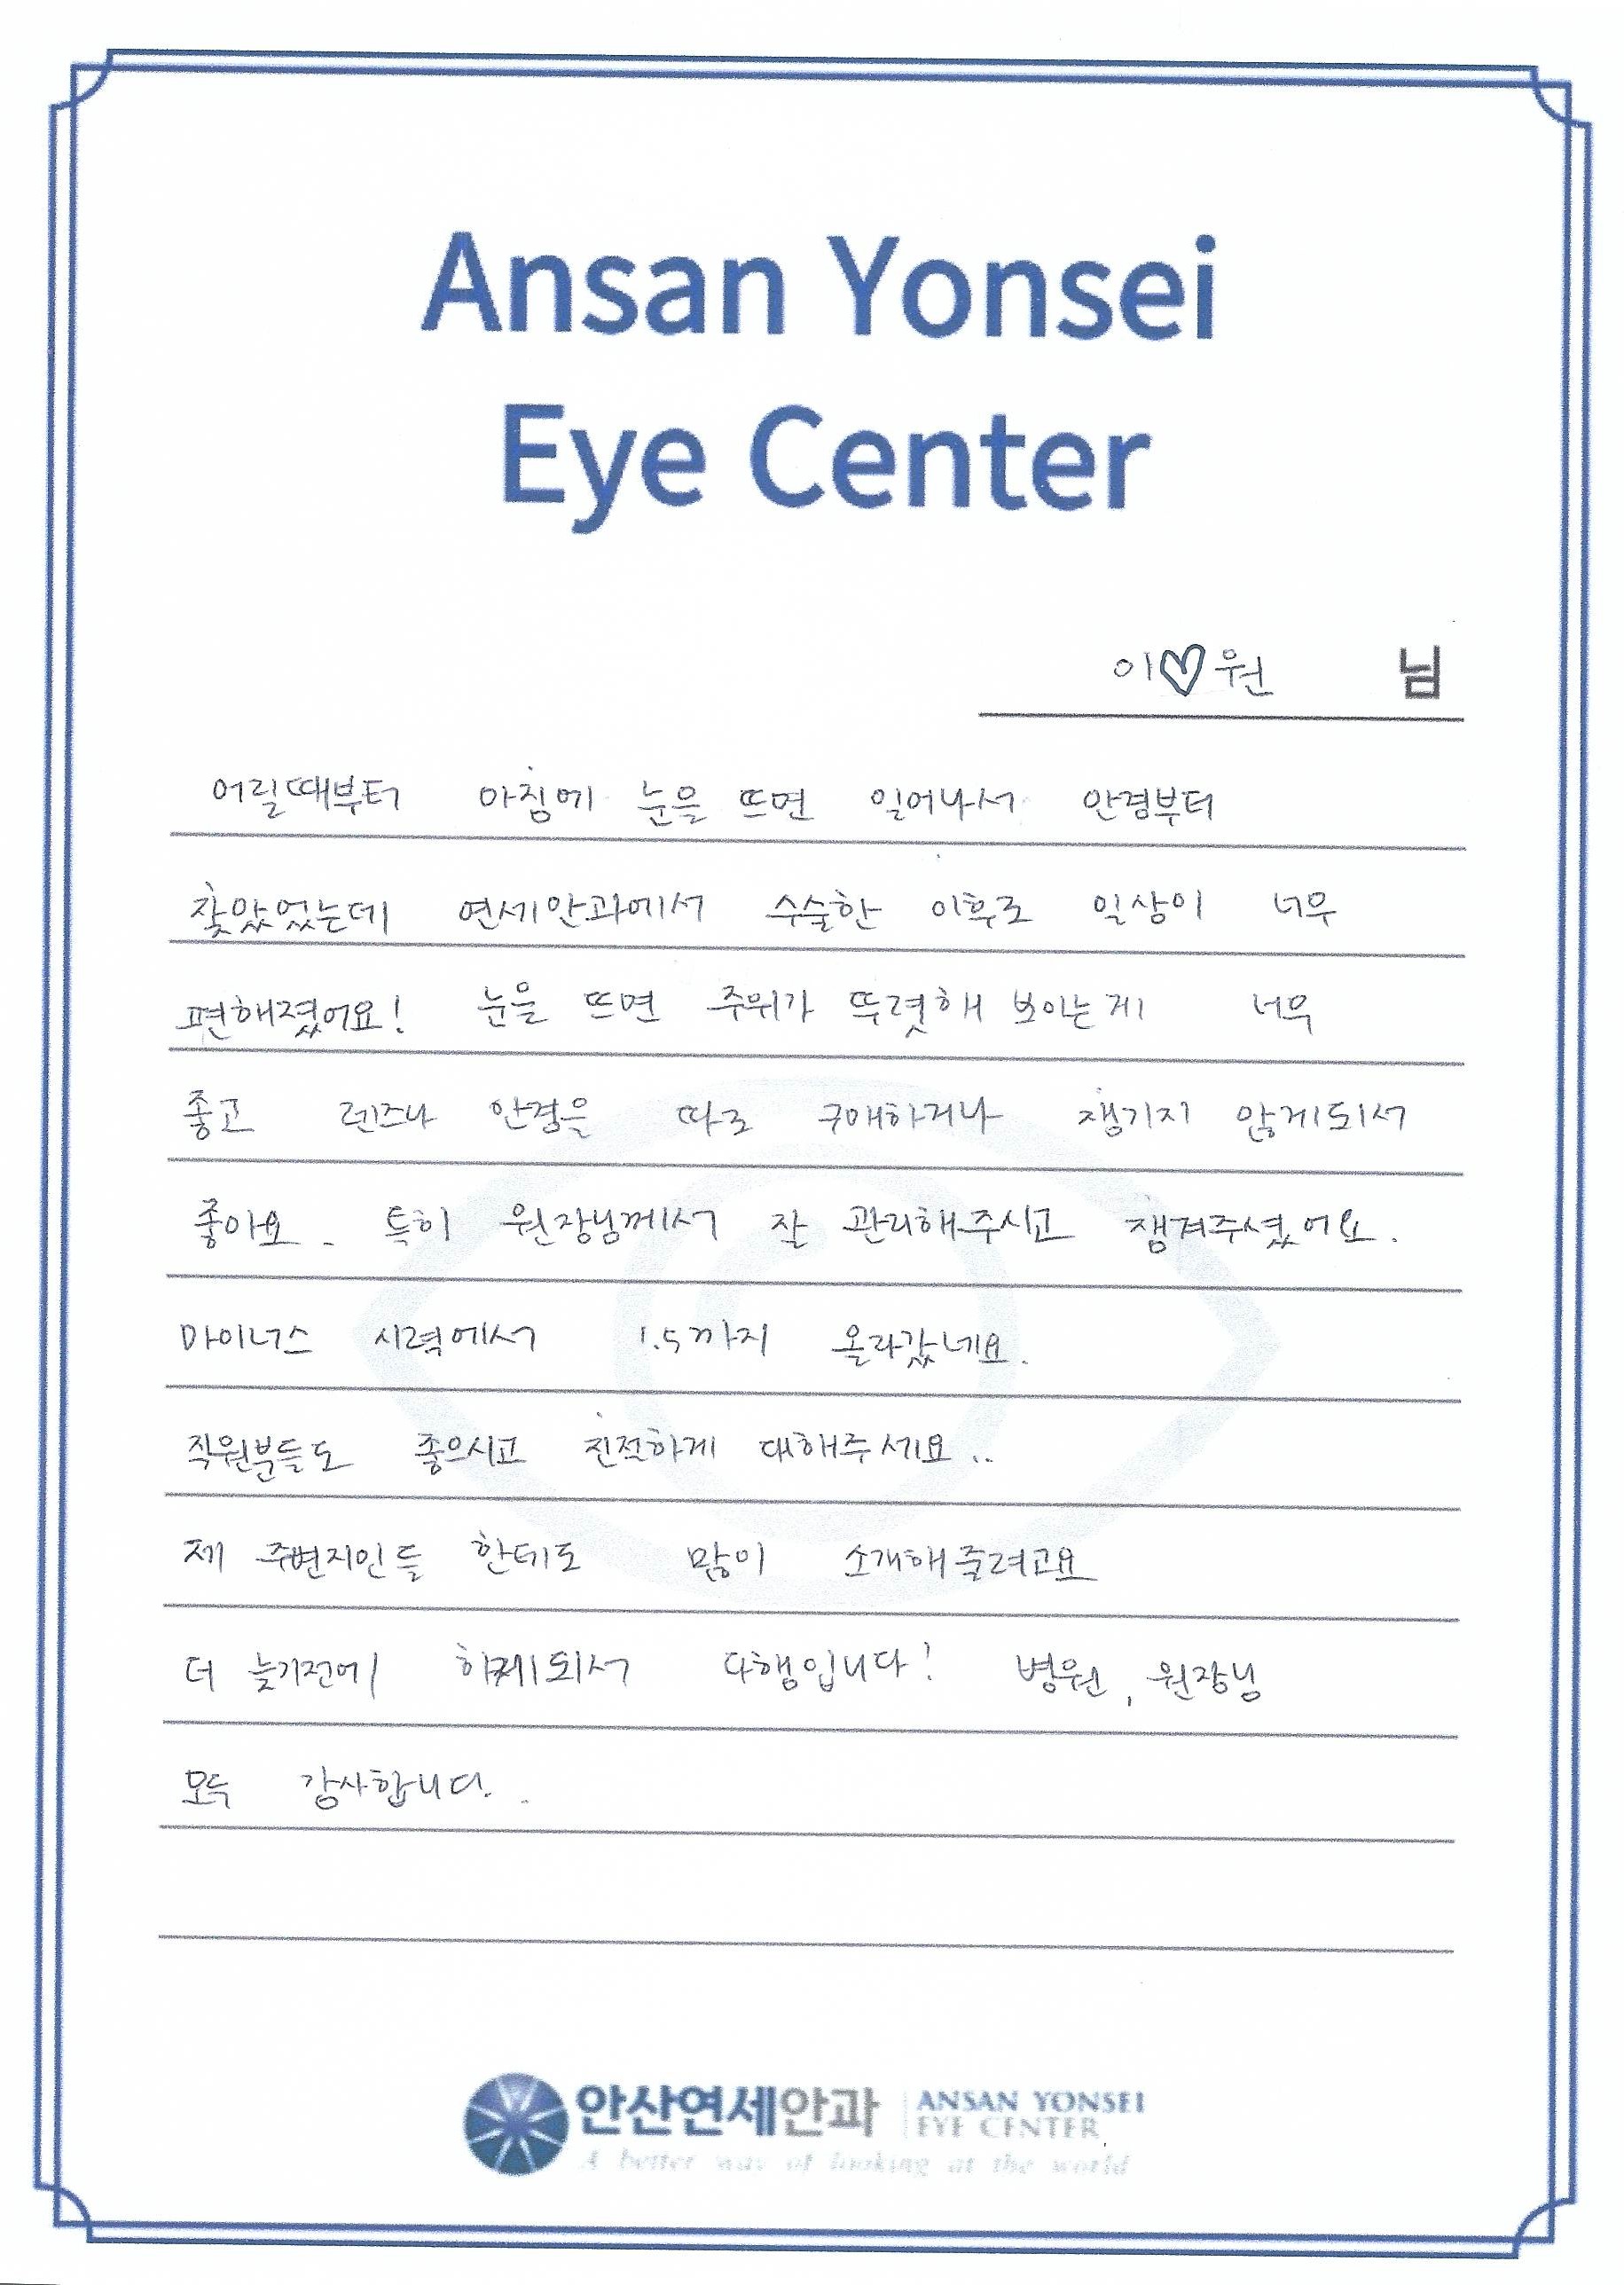 Ansan Yonsei
Eye Center
이♡원 님
어릴때부터 아침에 눈을 뜨면 일어나서 안경부터
찾았었는데 연세안과에서 수술한 이후로 일상이 너무
편해졌어요! 눈을 뜨면 주위가 뚜렷해 보이는게 너무
좋고 렌즈나 안경을 따로 구매하거나 챙기지 않게되서
좋아요. 특히 원장님께서 잘 관리해주시고 챙겨주셨어요.
마이너스 시력에서 1.5까지 올라갔네요.
직원분들도 좋으시고 친절하게 대해주세요..
제 주변지인들 한테도 많이 소개해줄려고요
더 늦기전에 하게되서 다행입니다! 병원, 원장님
모두 감사합니다..
안산연세안과 ANSAN YONSEI
EYE CENTER
A better way of looking at the world